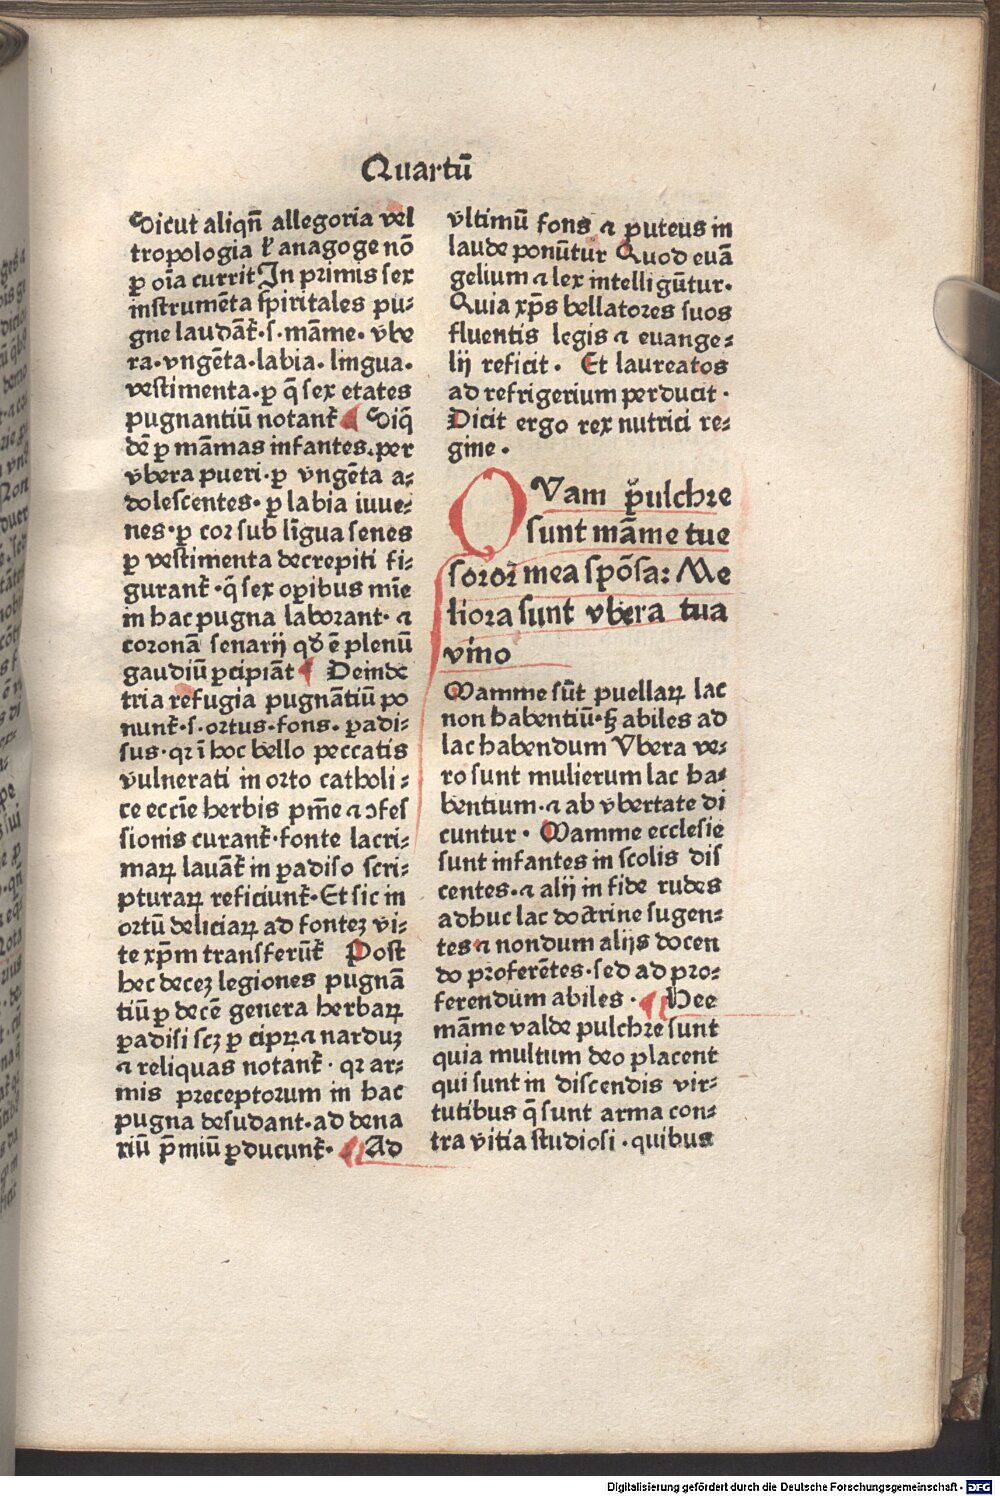 Quartū
Sicut aliqn̄ allegoria vel
tropologia ł anagoge nō
ꝑ oīa currit In primis sex
instrumēta spiritales pu⸗
gne laudāt̄·s·māme·vbe
ra·vngēta·labia·lingua·
vestimenta·ꝑ q̄ sex etates
pugnantiū notant̄ Siq̄
dē ꝑ māmas infantes·per
vbera pueri·ꝑ vngēta a⸗
dolescentes·ꝑ labia iuue⸗
nes·ꝑ cor sub līgua senes
ꝑ vestimenta decrepiti fi⸗
gurant̄·q̄ sex oꝑibus mīe
in hac pugna laborant·⁊
coronā senarij qd̄ ē plenū
gaudiū ꝑcipiāt Deinde
tria refugia pugnātiū po
nunt̄·s·ortus·fons·ꝑadi⸗
sus·qꝛ ī hoc bello peccatis
vulnerati in orto catholi⸗
ce eccīe herbis pm̄e ⁊ ɔfes
sionis curant̄·fonte lacri⸗
maꝝ lauāt̄ in ꝑadiso scri⸗
pturaꝝ reficiunt̄·Et sic in
ortū deliciaꝝ ad fonteꝫ vi⸗
te xp̄m transferūt̄ Post
hec deceꝫ legiones pugnā
tiū ꝑ decē genera herbaꝝ
ꝑadisi scꝫ ꝑ cipꝝ ⁊ narduꝫ
⁊ reliquas notant̄·qꝛ ar⸗
mis preceptorum in hac
pugna desudant·ad dena
riū p̄miū ꝑducunt̄· Ad
vltimū fons ⁊ puteus in
laude ponūtur Quod euā
gelium ⁊ lex intelligūtur·
Quia xp̄s bellatores suos
fluentis legis ⁊ euange⸗
lij reficit· Et laureatos
ad refrigerium perducit·
Dicit ergo rex nutrici re⸗
gine·
QVam pulchre
sunt māme tue
soror mea spōsa: Me
liora sunt vbera tua
vino
Mamme sūt puellaꝝ lac
non habentiū·ꝫ abiles ad
lac habendum Vbera ve⸗
ro sunt mulierum lac ha⸗
bentium·⁊ ab vbertate di
cuntur· Mamme ecclesie
sunt infantes in scolis dis
centes·⁊ alij in fide rudes
adhuc lac doctrine sugen⸗
tes ⁊ nondum alijs docen
do proferētes·sed ad pro⸗
ferendum abiles· Hee
māme valde pulchre sunt
quia multum deo placent
qui sunt in discendis vir⸗
tutibus q̄ sunt arma con⸗
tra vitia studiosi·quibus
Digitalisierung gefördert durch die Deutsche Forschungsgemeinschaft - DFG